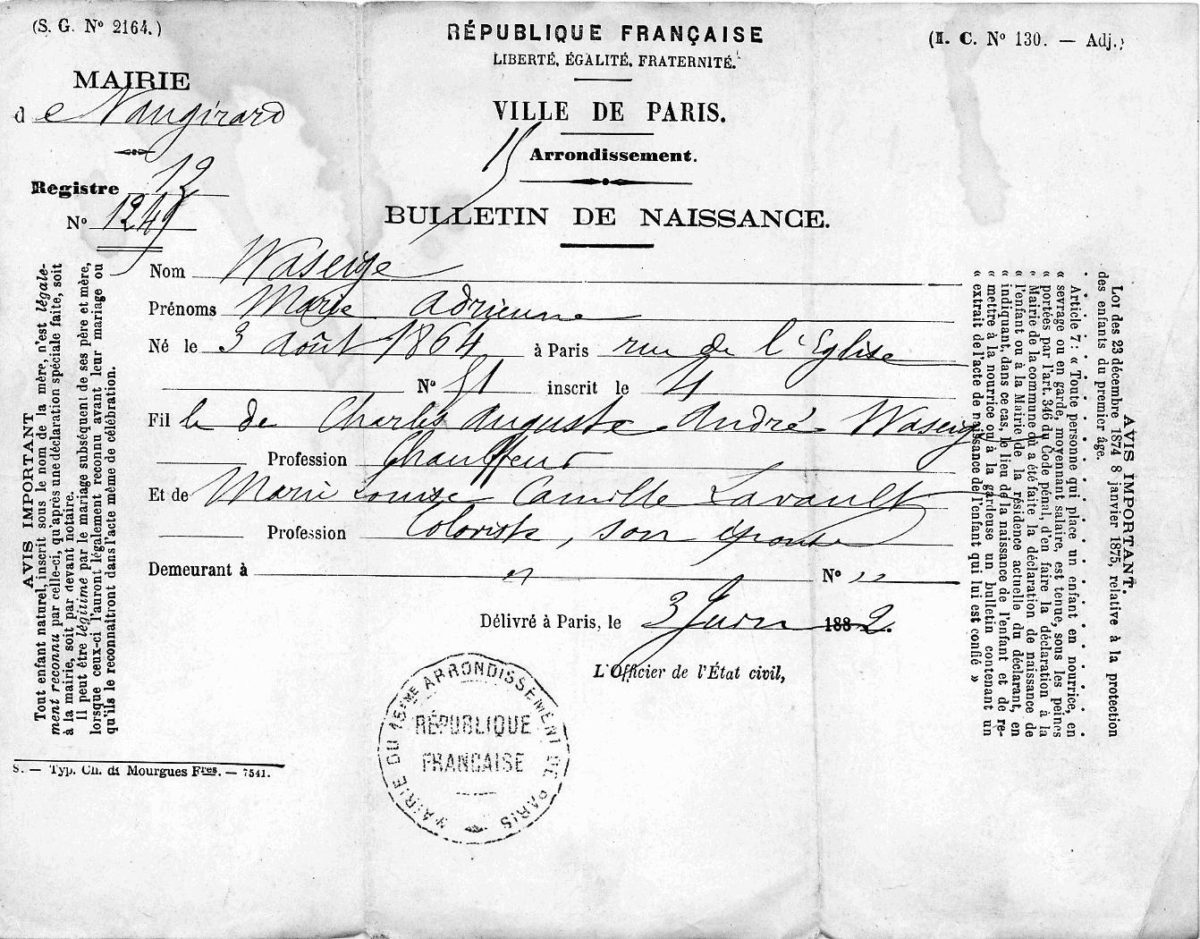 (S. G. Nº 2164.)
RÉPUBLIQUE FRANÇAISE
(I. C. Nº 130. — Adj.)
LIBERTÉ, ÉGALITÉ, FRATERNITÉ.
MAIRIE
de Vaugirard
VILLE DE PARIS.
15 Arrondissement.
Registre 12
Nº 1249
BULLETIN DE NAISSANCE.
Nom Waseige
Prénoms Marie Adrienne
Né le 3 août 1864 à Paris rue de l'Eglise
Nº 51 inscrit le 4
Fille de Charles Auguste André Waseige
Profession Chauffeur
Et de Marie Louise Camille Lavault
Profession Coloriste, son épouse
Demeurant à " Nº "
Délivré à Paris, le 3 Juin 1882.
L'Officier de l'État civil,
MAIRIE DU 15ME ARRONDISSEMENT DE PARIS
RÉPUBLIQUE
FRANCAISE
AVIS IMPORTANT
Tout enfant naturel, inscrit sous le nom de la mère, n'est légale-
ment reconnu par celle-ci, qu'après une déclaration spéciale faite, soit
à la mairie, soit par devant notaire.
Il peut être légitimé par le mariage subséquent de ses père et mère,
lorsque ceux-ci l'auront légalement reconnu avant leur mariage ou
qu'ils le reconnaîtront dans l'acte même de célébration.
S. — Typ. Ch. de Mourgues Fres. — 7541.
AVIS IMPORTANT.
Loi des 23 décembre 1874 8 janvier 1875, relative à la protection
des enfants du premier âge.
Article 7: « Toute personne qui place un enfant en nourrice, en
« sevrage ou en garde, moyennant salaire, est tenue, sous les peines
« portées par l'art. 346 du Code pénal, d'en faire la déclaration à la
« Mairie de la commune où a été faite la déclaration de naissance de
« l'enfant ou à la Mairie de la résidence actuelle du déclarant, en
« indiquant, dans ce cas, le lieu de la naissance de l'enfant et de re-
« mettre à la nourrice ou à la gardeuse un bulletin contenant un
« extrait de l'acte de naissance de l'enfant qui lui est confié »